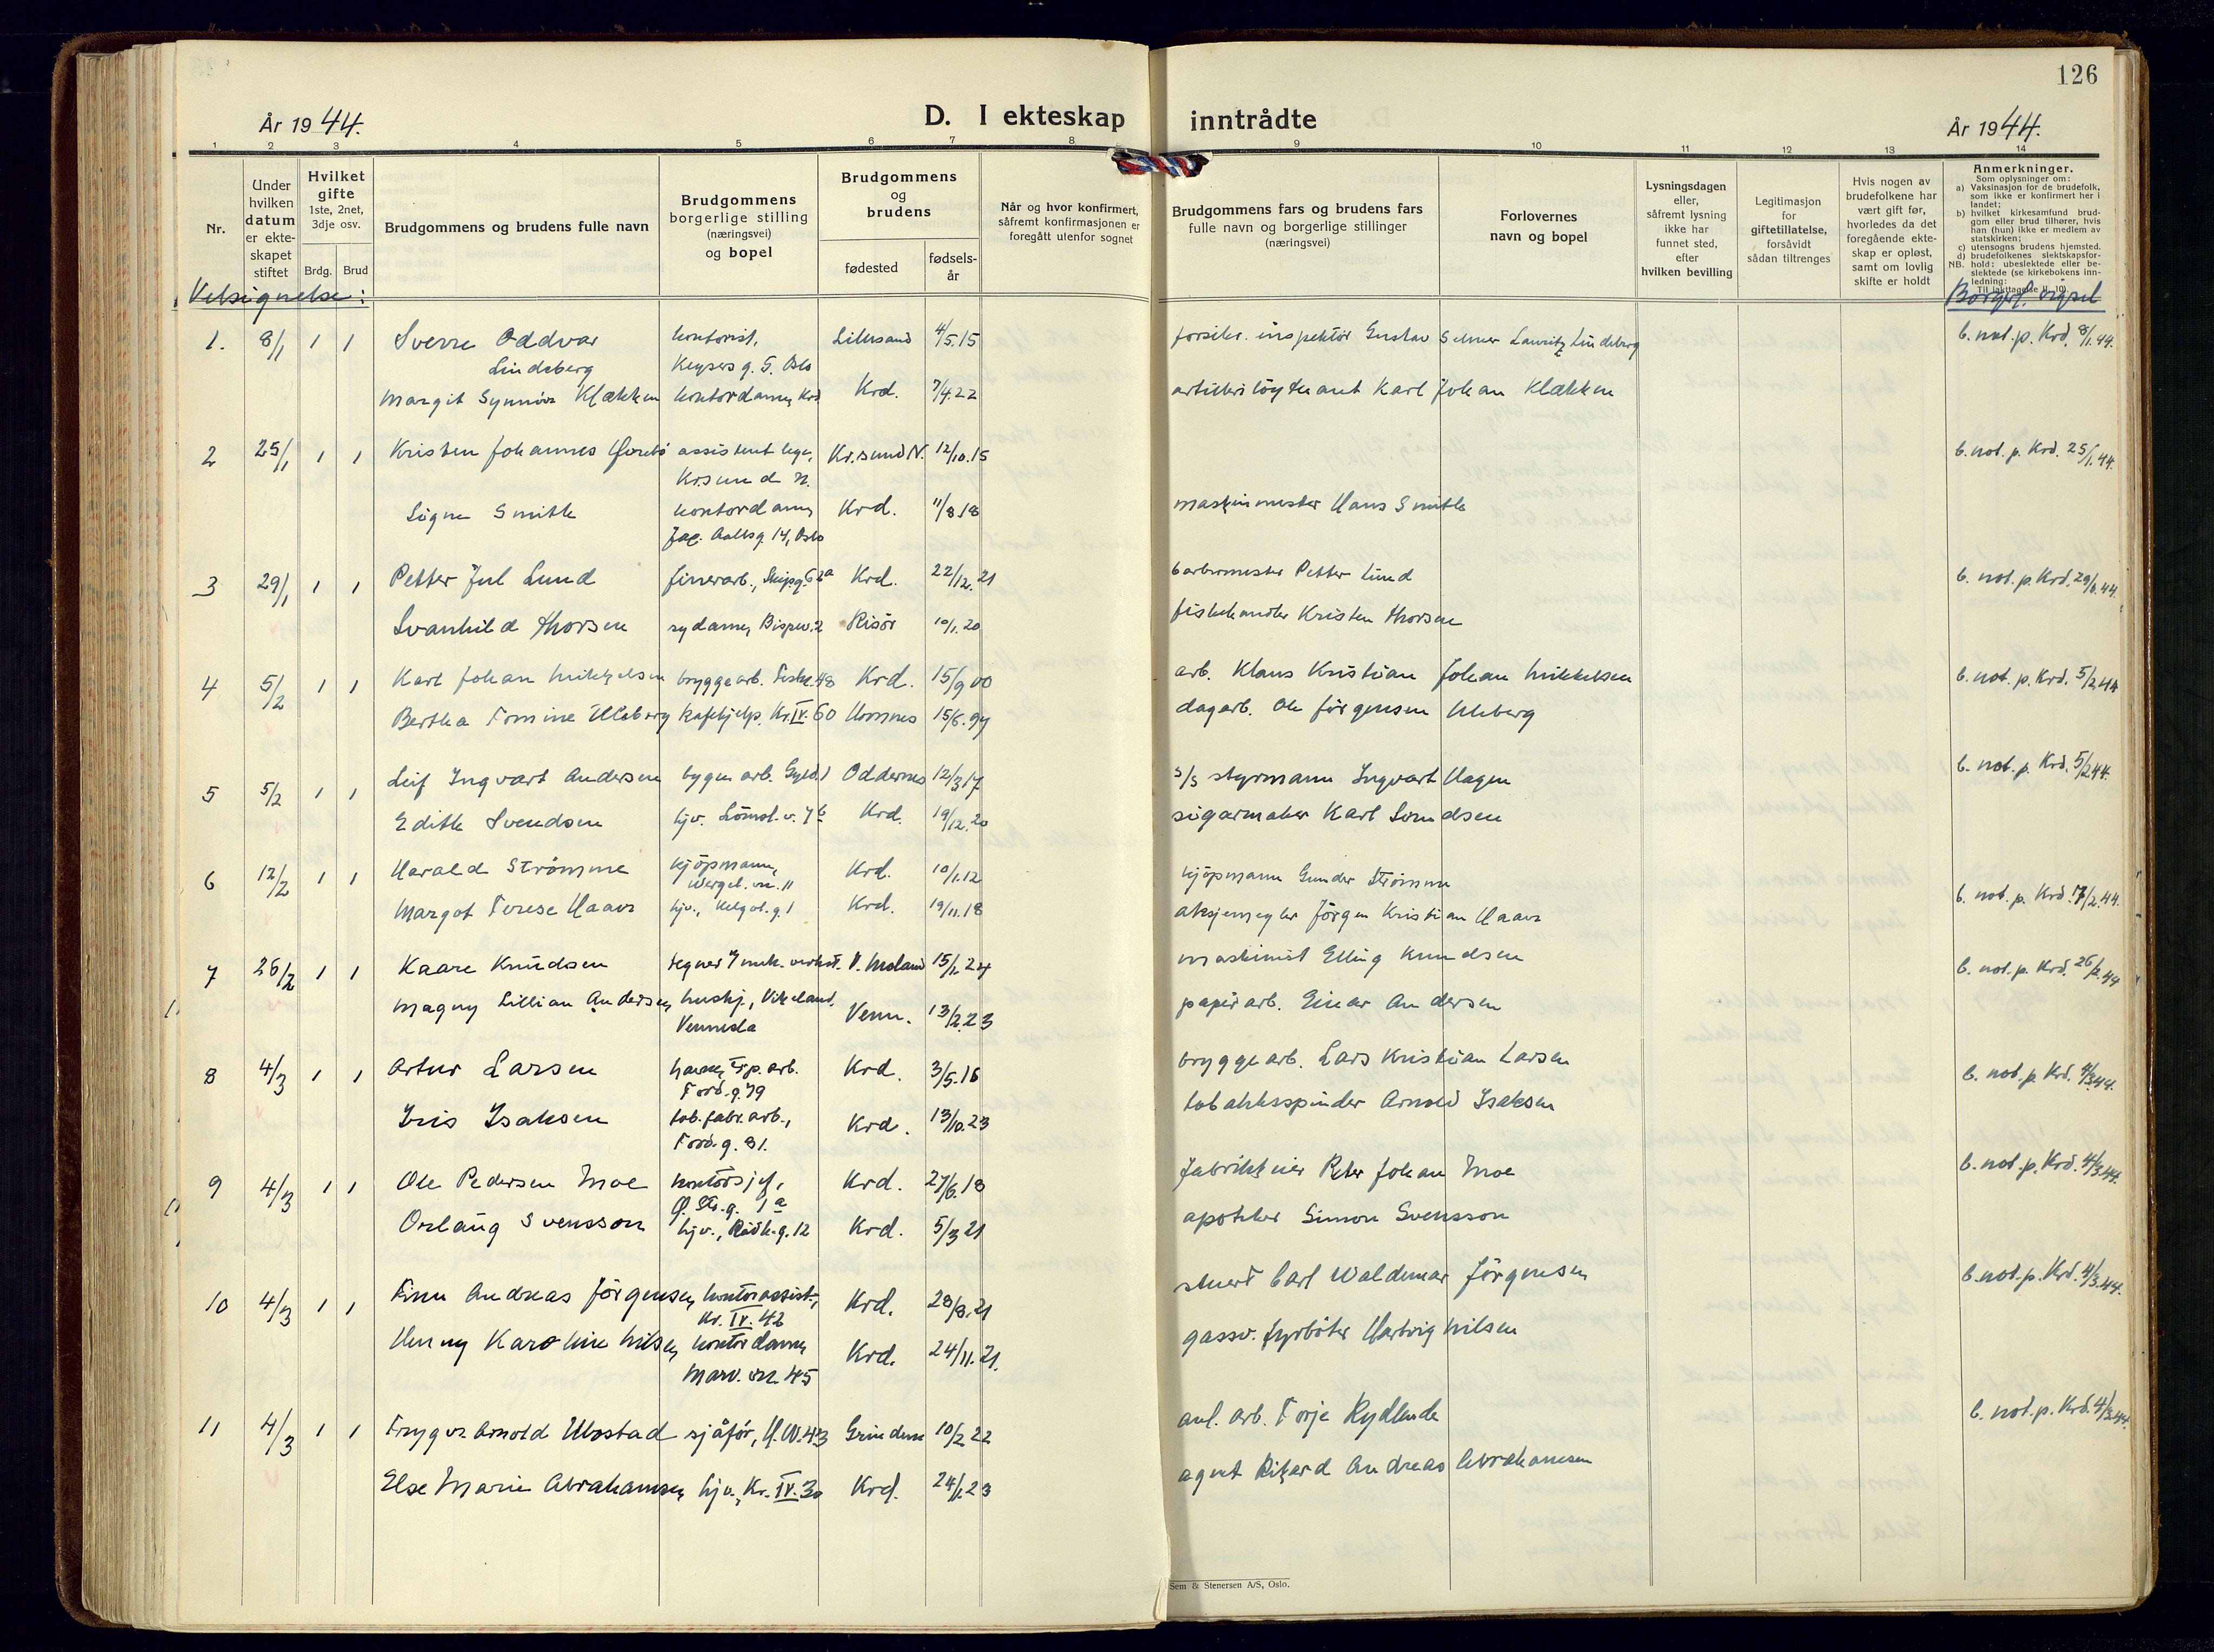 126
År 1944.
D. I ekteskap inntrådte
År 1944.
1 2 3 4 5 6 7 8 9 10 11 12 13 14
Nr.
Under hvilken datum er ekteskapet stiftet
Hvilket gifte
1ste, 2net, 3dje osv.
Brdg. Brud
Brudgommens og brudens fulle navn
Brudgommens borgerlige stilling (næringsvei) og bopel
Brudgommens og brudens
fødested
fødselsår
Når og hvor konfirmert, såfremt konfirmasjonen er foregått utenfor sognet
Brudgommens fars og brudens fars fulle navn og borgerlige stillinger (næringsvei)
Forlovernes navn og bopel
Lysningsdagen eller, såfremt lysning ikke har funnet sted, efter hvilken bevilling
Legitimasjon for giftetillatelse, forsåvidt sådan tiltrenges
Hvis nogen av brudefolkene har vært gift før, hvorledes da det foregående ekteskap er opløst, samt om lovlig skifte er holdt
Anmerkninger.
Som oplysninger om:
a) Vaksinasjon for de brudefolk, som ikke er konfirmert her i landet;
b) hvilket kirkesamfund brudgom eller brud tilhører, hvis han (hun) ikke er medlem av statskirken;
c) utensogns brudens hjemsted.
d) brudefolkenes slektskapsforhold: ubeslektede eller beslektede (se kirkebokens innledning:
NB.
Velsignelse:
Borgerl. vigsel
1. 8/1 1 1 Sverre Oddvar kontorist, Lillesand 4/5.15 forsikr. inspektör Gustav Selmer Lauritz Lindeberg b. not. p. Krd. 8/1.44.
Lindeberg Keysers g. 5. Oslo
Margit Synnöve Klækken kontordame, Krd. Krd. 7/4.22 artilleri löytenant Karl Johan Klækken
2 25/1 1 1 Kristen Johannes assistentlege, Kr.sund N. 12/10.15 b. not. p. Krd. 25/1.44.
Kr.sund N.
Signe Smith kontordame Krd. 11/8.18 maskinmester Hans Smith
Jac. Aallsg. 14, Oslo
3 29/1 1 1 Petter Jul Lund finerarb., Skipsg. 62a Krd. 22/12.21 barbermester Petter Lund b. not. p. Krd. 29/1.44.
Svanhild Thorsen sydame, Bispev. 2 Risör 10/1.20 fiskehandler Kristen Thorsen
4 5/2 1 1 Karl Johan Mikkelsen bryggearb. Festn. 48 Krd. 15/9 00 arb. Klaus Kristian Johan Mikkelsen b. not. p. Krd. 5/2.44
Bertha Tomine Ulleberg kafehjelp. Kr. IV. 60 Hornnes 15/6.99 dagarb. Ole Jörgensen Uleberg
5 5/2 1 1 Leif Ingvart Andersen bygn. arb. Gyld. 1 Oddernes 12/3 17 s/s styrmann Ingvart Hagen b. not. p. Krd. 5/2 44.
Edith Svendsen hjv. Lömsl. v. 7b Krd. 19/12.20 sigarmaker Karl Svendsen
6 12/2 1 1 Harald Strömme kjöpmann, Krd. 10/1.12 kjöpmann Gunder Strömme b. not. p. Krd. 12/2.44.
Wergel. vn. 11
Margot Terese Haavr hjv., Helgol. g. 1 Krd. 19/11.18 aksjemegler Jörgen Kristian Haavr
7 26/2 1 1 Kaare Knudsen tegner V. Moland 15/1.24 maskinist Elling Knudsen b. not. p. Krd. 26/2.44
Magny Lillian Andersen, hushj., Vikeland, Venn. 13/2.23 papirarb. Einar Andersen
Vennesla
8 4/3 1 1 Artur Larsen Krd. 3/5.16 bryggearb. Lars Kristian Larsen b. not. p. Krd. 4/3.44.
Tord. g. 79
Iris Isaksen tob. fabr. arb., Krd. 13/10.23 tobakksspinder Arnold Isaksen
Tord. g. 81.
9 4/3 1 1 Ole Pedersen Moe kontorsjef, Krd. 27/6.18 fabrikkeier Peter Johan Moe b. not. p. Krd. 4/3.44.
Ø. Str. g. 1a
Oslaug Svensson hjv., Rådh. g. 12 Krd. 5/3 21 apoteker Simon Svensson
10 4/3 1 1 Finn Andreas Jörgensen, kontorassist., Krd. 28/8.21 stuert Carl Waldemar Jörgensen b. not. p. Krd. 4/3.44.
Kr. IV. 42
Henny Karoline Nilsen, kontordame Krd. 24/11.21. gassv. fyrböter Hartvig Nilsen
Marv. vn. 45
11 4/3 1 1 Trygve Arnold Ubostad sjåför, H. W. 43 Grindem 10/2 22 anl. arb. Torje Rydlende b. not. p. Krd. 4/3.44.
Else Marie Abrahamsen, hjv., Kr. IV. 30 Krd. 24/1.23 agent Rikard Andreas Abrahamsen
Sem & Stenersen A/S, Oslo.